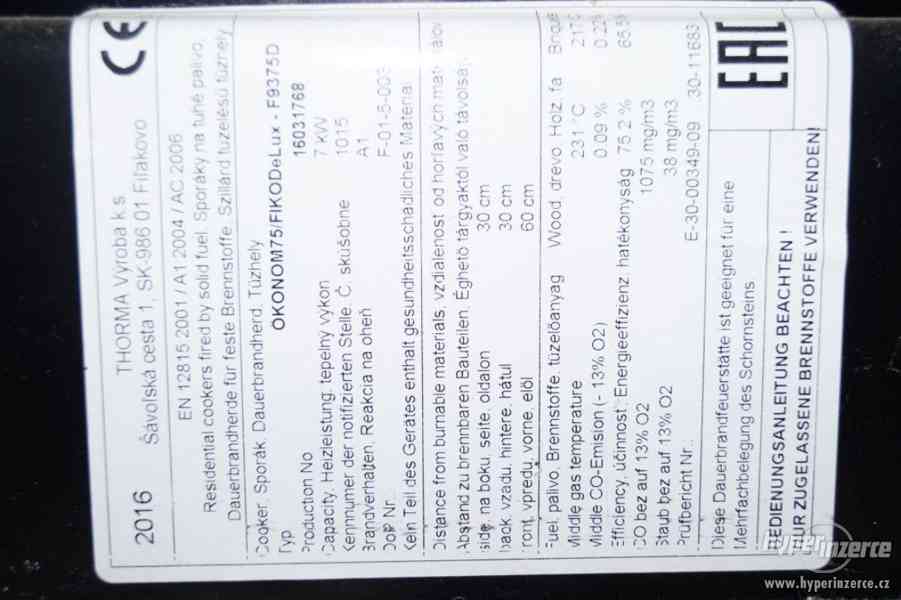 2016 THORMA Výroba k.s. CE
Šávolská cesta 1, SK-986 01 Fiľakovo
EN 12815:2001 / A1:2004 / AC:2006
Residential cookers fired by solid fuel. Sporáky na tuhé palivo,
Dauerbrandherde für feste Brennstoffe. Szillárd tüzelésű tűzhely
Cooker. Sporák. Dauerbrandherd. Tűzhely
Typ ÖKONOM75/FIKODeLux - F9375D
Production No 16031768
Capacity, Heizleistung, tepelný výkon 7 kW
Kennnumer der notifizierten Stelle, Č. skúšobne 1015
Brandverhalten, Reakcia na oheň A1
DoP Nr.: F-01-5-003
Kein Teil des Gerätes enthalt gesundheitsschadliches Material.
Distance from burnable materials, vzdialenost od horľavých mat
Abstand zu brennbaren Bauteilen, Éghető tárgyaktól való távolság
side, na boku, seite, oldalon 30 cm
back, vzadu, hintere, hátul 30 cm
front, vpredu, vorne, elöl 60 cm
Fuel, palivo, Brennstoffe, tüzelőanyag Wood, drevo, Holz, fa Brique
Middle gas temperature 231 °C 217°C
Middle CO-Emision (- 13% O2) 0.09 % 0.22%
Efficiency, účinnosť, Energeeffizienz, hatékonyság 75.2 % 65.5%
CO bez auf 13% O2 1075 mg/m3
Staub bez auf 13% O2 38 mg/m3
Prüfbericht Nr.: E-30-00349-09 30-11683
Diese Dauerbrandfeuerstätte ist geeignet für eine
Mehrfachbelegung des Schornsteins
EAC
BEDIENUNGSANLEITUNG BEACHTEN !
NUR ZUGELASSENE BRENNSTOFFE VERWENDEN!
hyperinzerce
www.hyperinzerce.cz